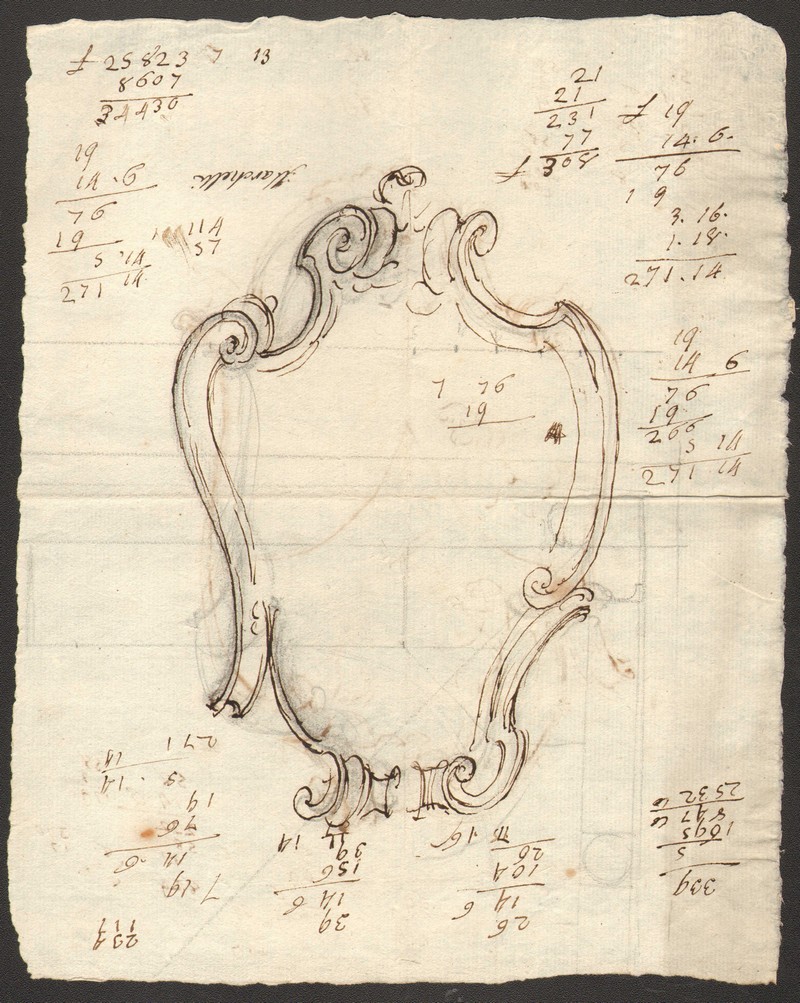 f 25823 7 13
8607
34430
19
14.6
76
19
5.14
271 14
114
57
Marchelli
21
21
231
77
f 308
f 19
14.6.
76
1 9
3.16.
1.18.
271.14
19
14 6
76
19
266
5 14
271 14
7 76
19
7 19
14 6
76
19
5.14
271 14
234
39
14 6
156
39
26
14 6
104
26
339
5
1695
847 6
2532 6